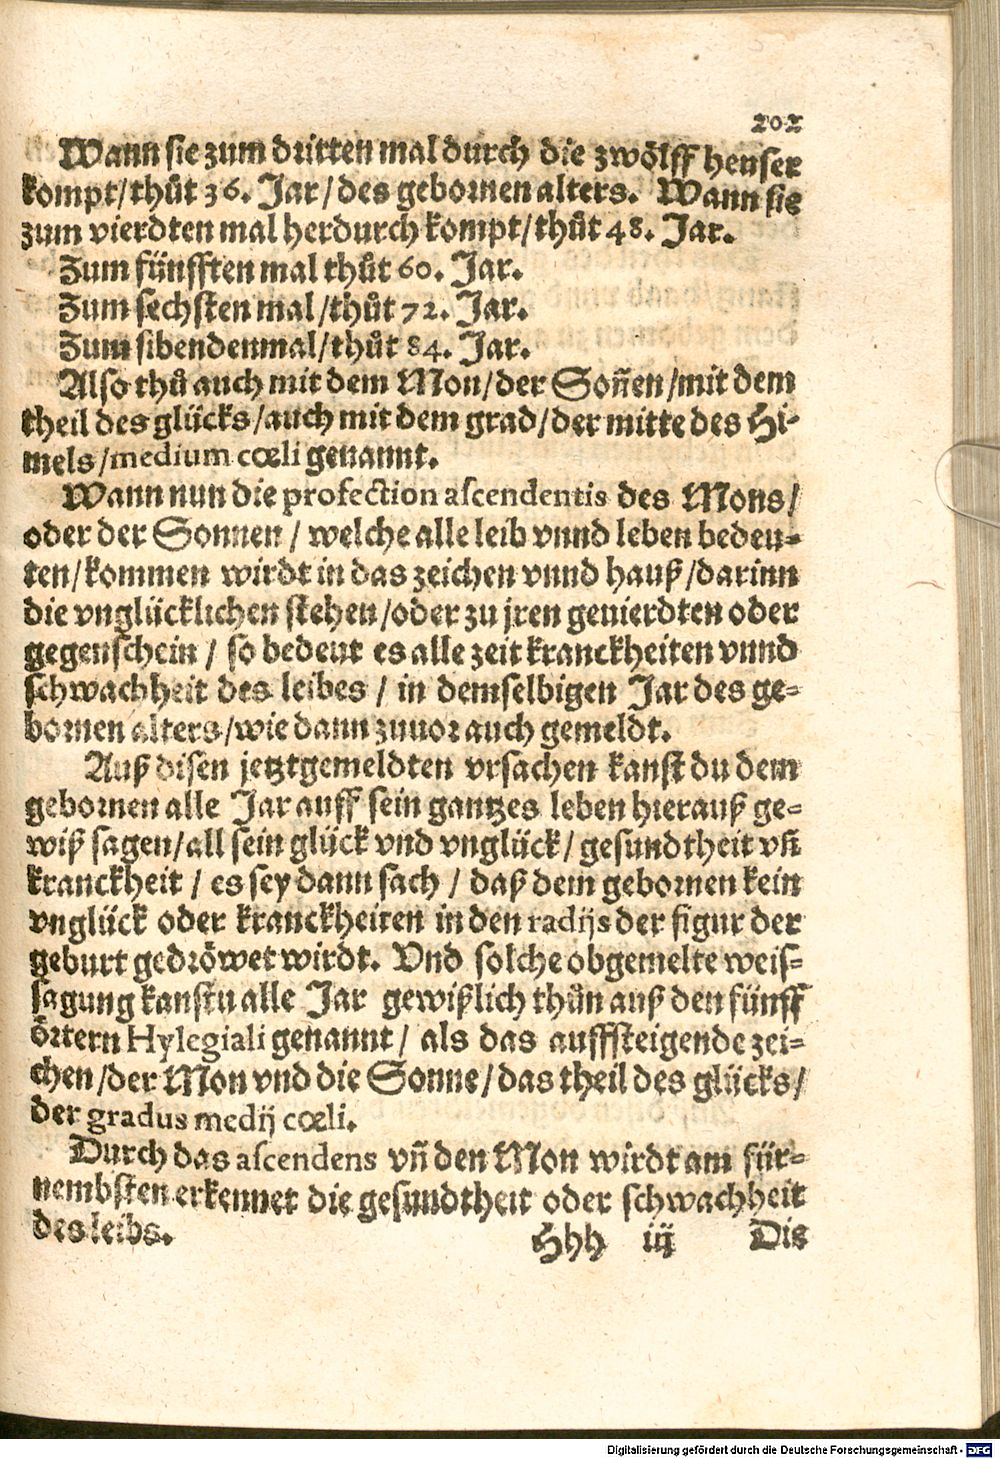 202
Wann sie zum dritten mal durch die zwölff heuser
kompt/thůt 36. Jar/des gebornen alters. Wann sie
zum vierdten mal herdurch kompt/thůt 48. Jar.
Zum fünfften mal thůt 60. Jar.
Zum sechsten mal/thůt 72. Jar.
Zum sibendenmal/thůt 84. Jar.
Also thů auch mit dem Mon/der Soñen/mit dem
theil des glücks/auch mit dem grad/der mitte des Hi-
mels/medium cœli genannt.
Wann nun die profection ascendentis des Mons/
oder der Sonnen/ welche alle leib vnnd leben bedeu-
ten/kommen wirdt in das zeichen vnnd hauß/darinn
die vnglücklichen stehen/oder zu jren geuierdten oder
gegenschein/ so bedeut es alle zeit kranckheiten vnnd
schwachheit des leibes/ in demselbigen Jar des ge-
bornen alters/wie dann zuuor auch gemeldt.
Auß disen jetztgemeldten vrsachen kanst du dem
gebornen alle Jar auff sein gantzes leben hierauß ge-
wiß sagen/all sein glück vnd vnglück/ gesundtheit vñ
kranckheit/ es sey dann sach/ daß dem gebornen kein
vnglück oder kranckheiten in den radijs der figur der
geburt gedröwet wirdt. Vnd solche obgemelte weis-
sagung kanstu alle Jar gewißlich thůn auß den fünff
örtern Hylegiali genannt/ als das auffsteigende zei-
chen/der Mon vnd die Sonne/das theil des glücks/
der gradus medij cœli.
Durch das ascendens vñ den Mon wirdt am für-
nembsten erkennet die gesundtheit oder schwachheit
des leibs.
Hhh iij Dis
Digitalisierung gefördert durch die Deutsche Forschungsgemeinschaft - DFG